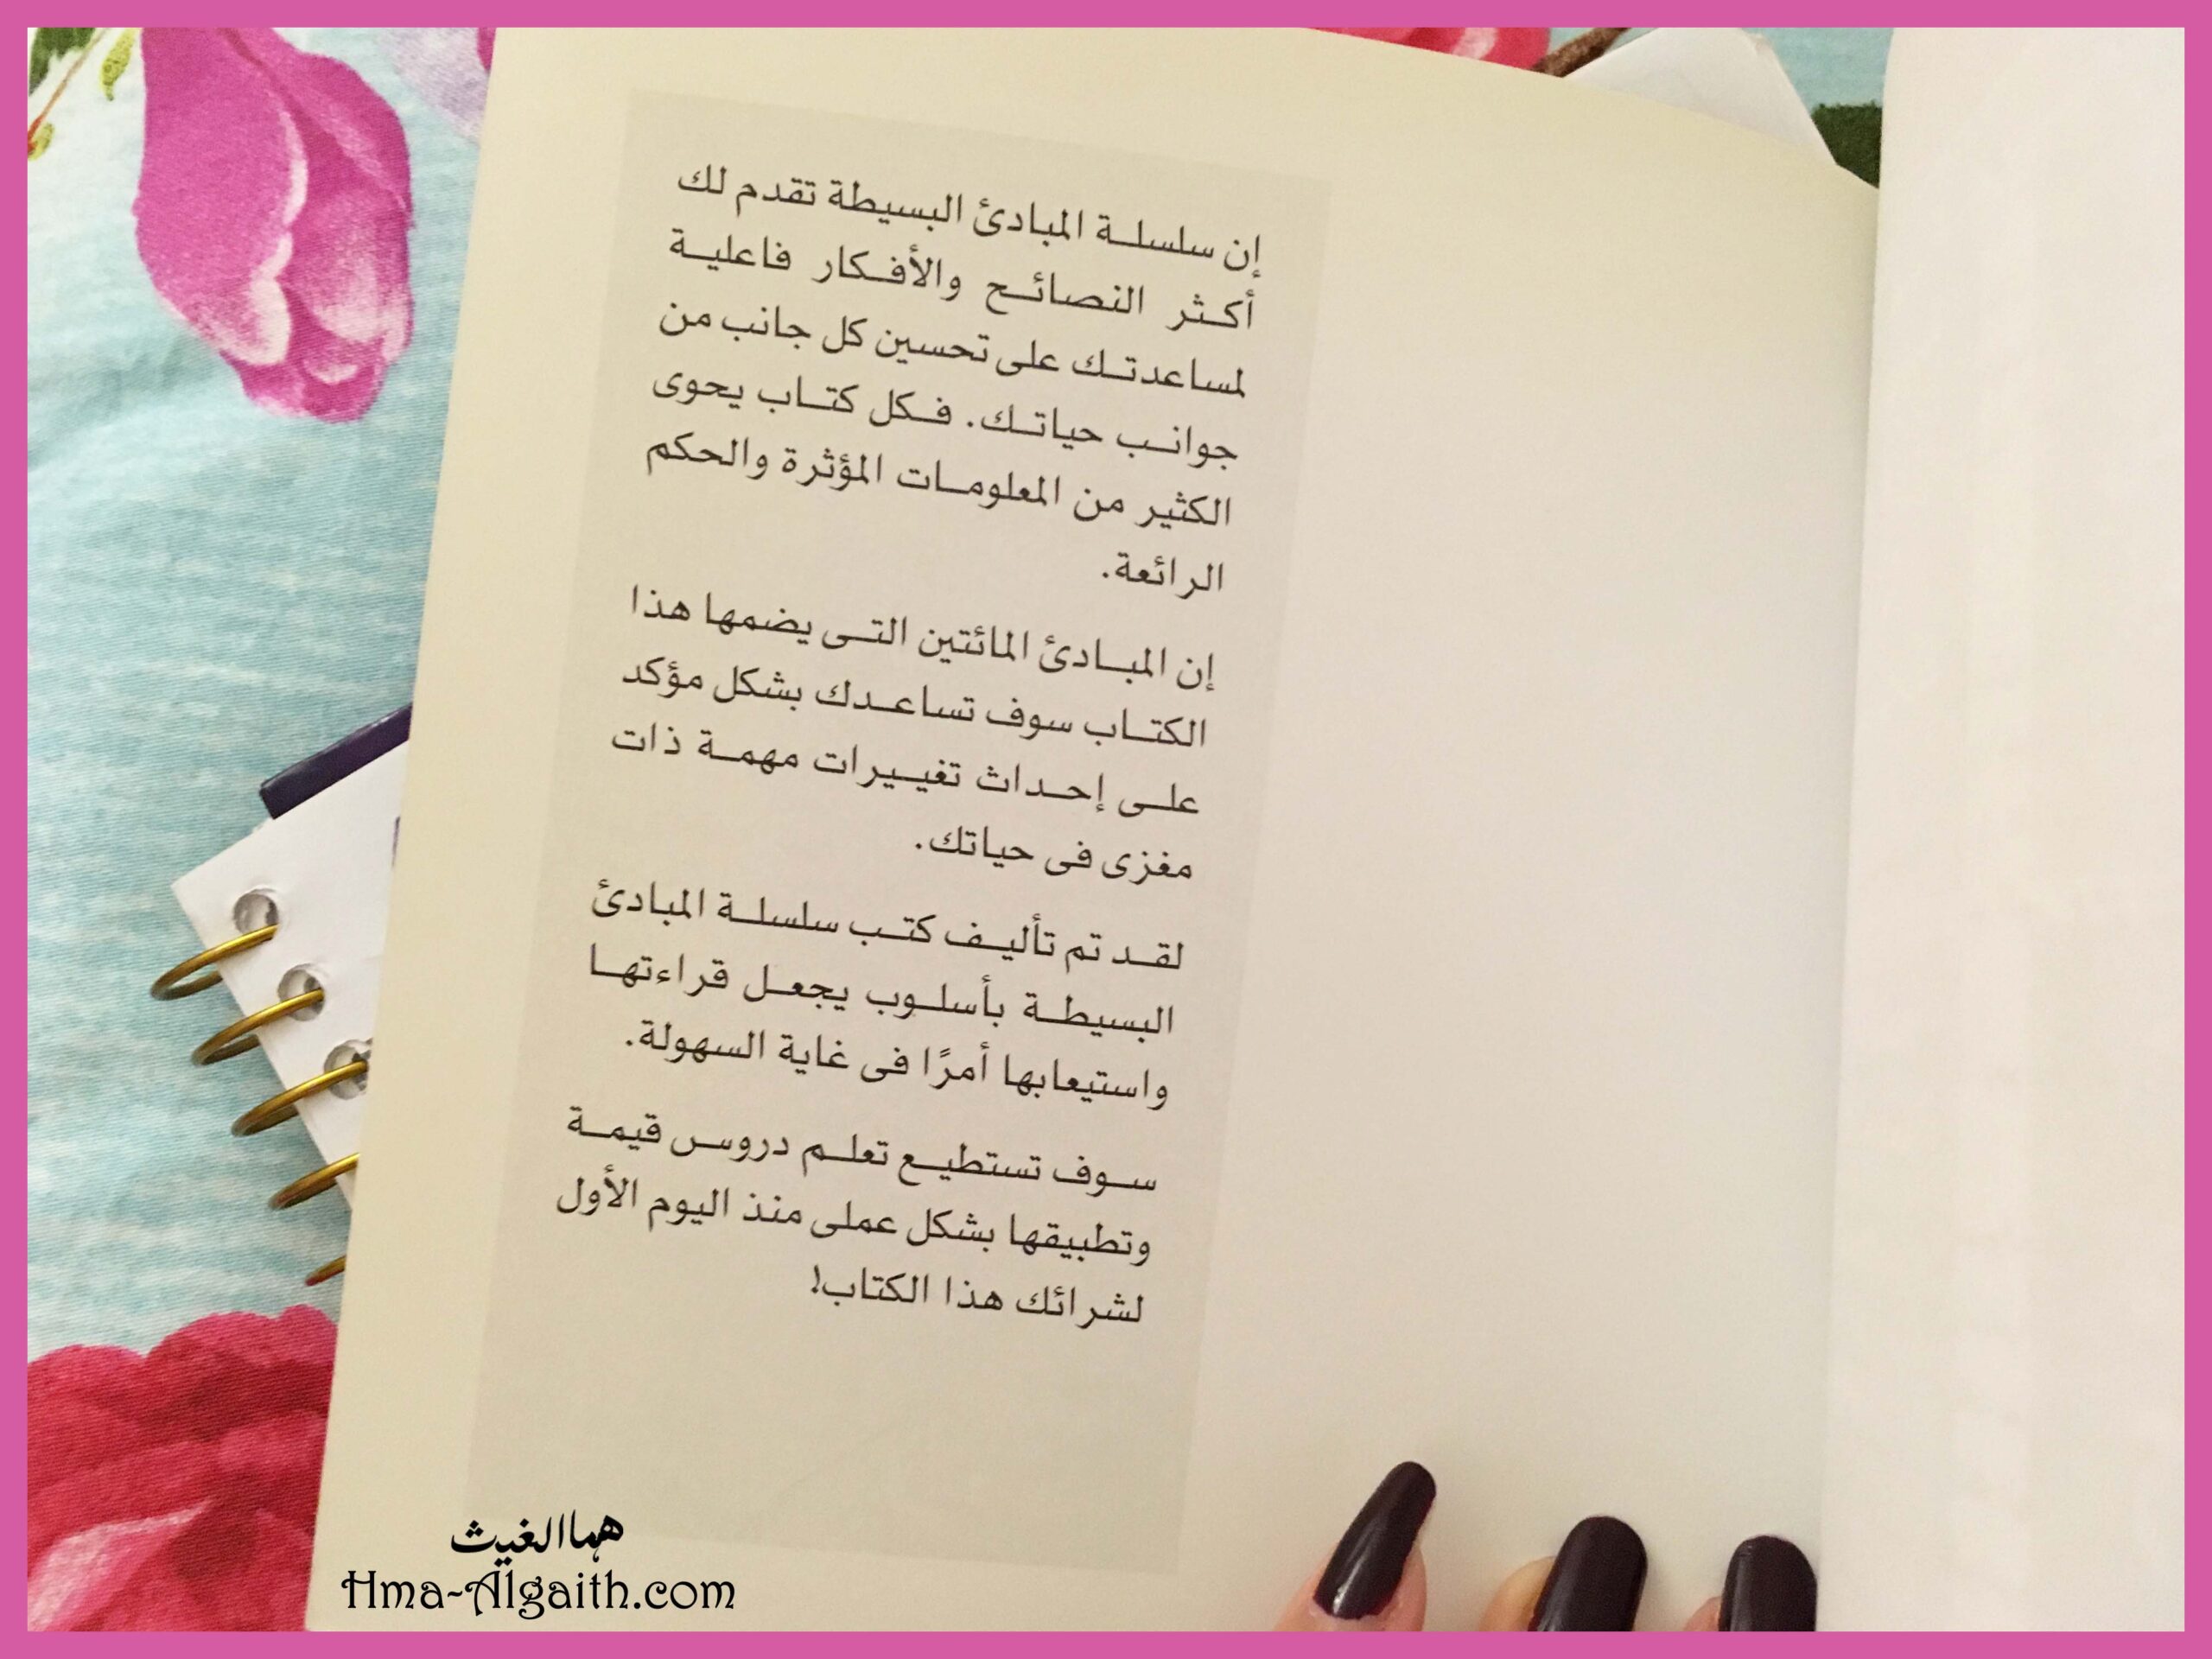 إن سلسلة المبادئ البسيطة تقدم لك
أكثر النصائح والأفكار فاعلية
لمساعدتك على تحسين كل جانب من
جوانب حياتك. فكل كتاب يحوى
الكثير من المعلومات المؤثرة والحكم
الرائعة.
إن المبادئ المائتين التى يضمها هذا
الكتاب سوف تساعدك بشكل مؤكد
على إحداث تغييرات مهمة ذات
مغزى فى حياتك.
لقد تم تأليف كتب سلسلة المبادئ
البسيطة بأسلوب يجعل قراءتها
واستيعابها أمرًا فى غاية السهولة.
سوف تستطيع تعلم دروس قيمة
وتطبيقها بشكل عملى منذ اليوم الأول
لشرائك هذا الكتاب!
هما الغيث
Hma-Algaith.com